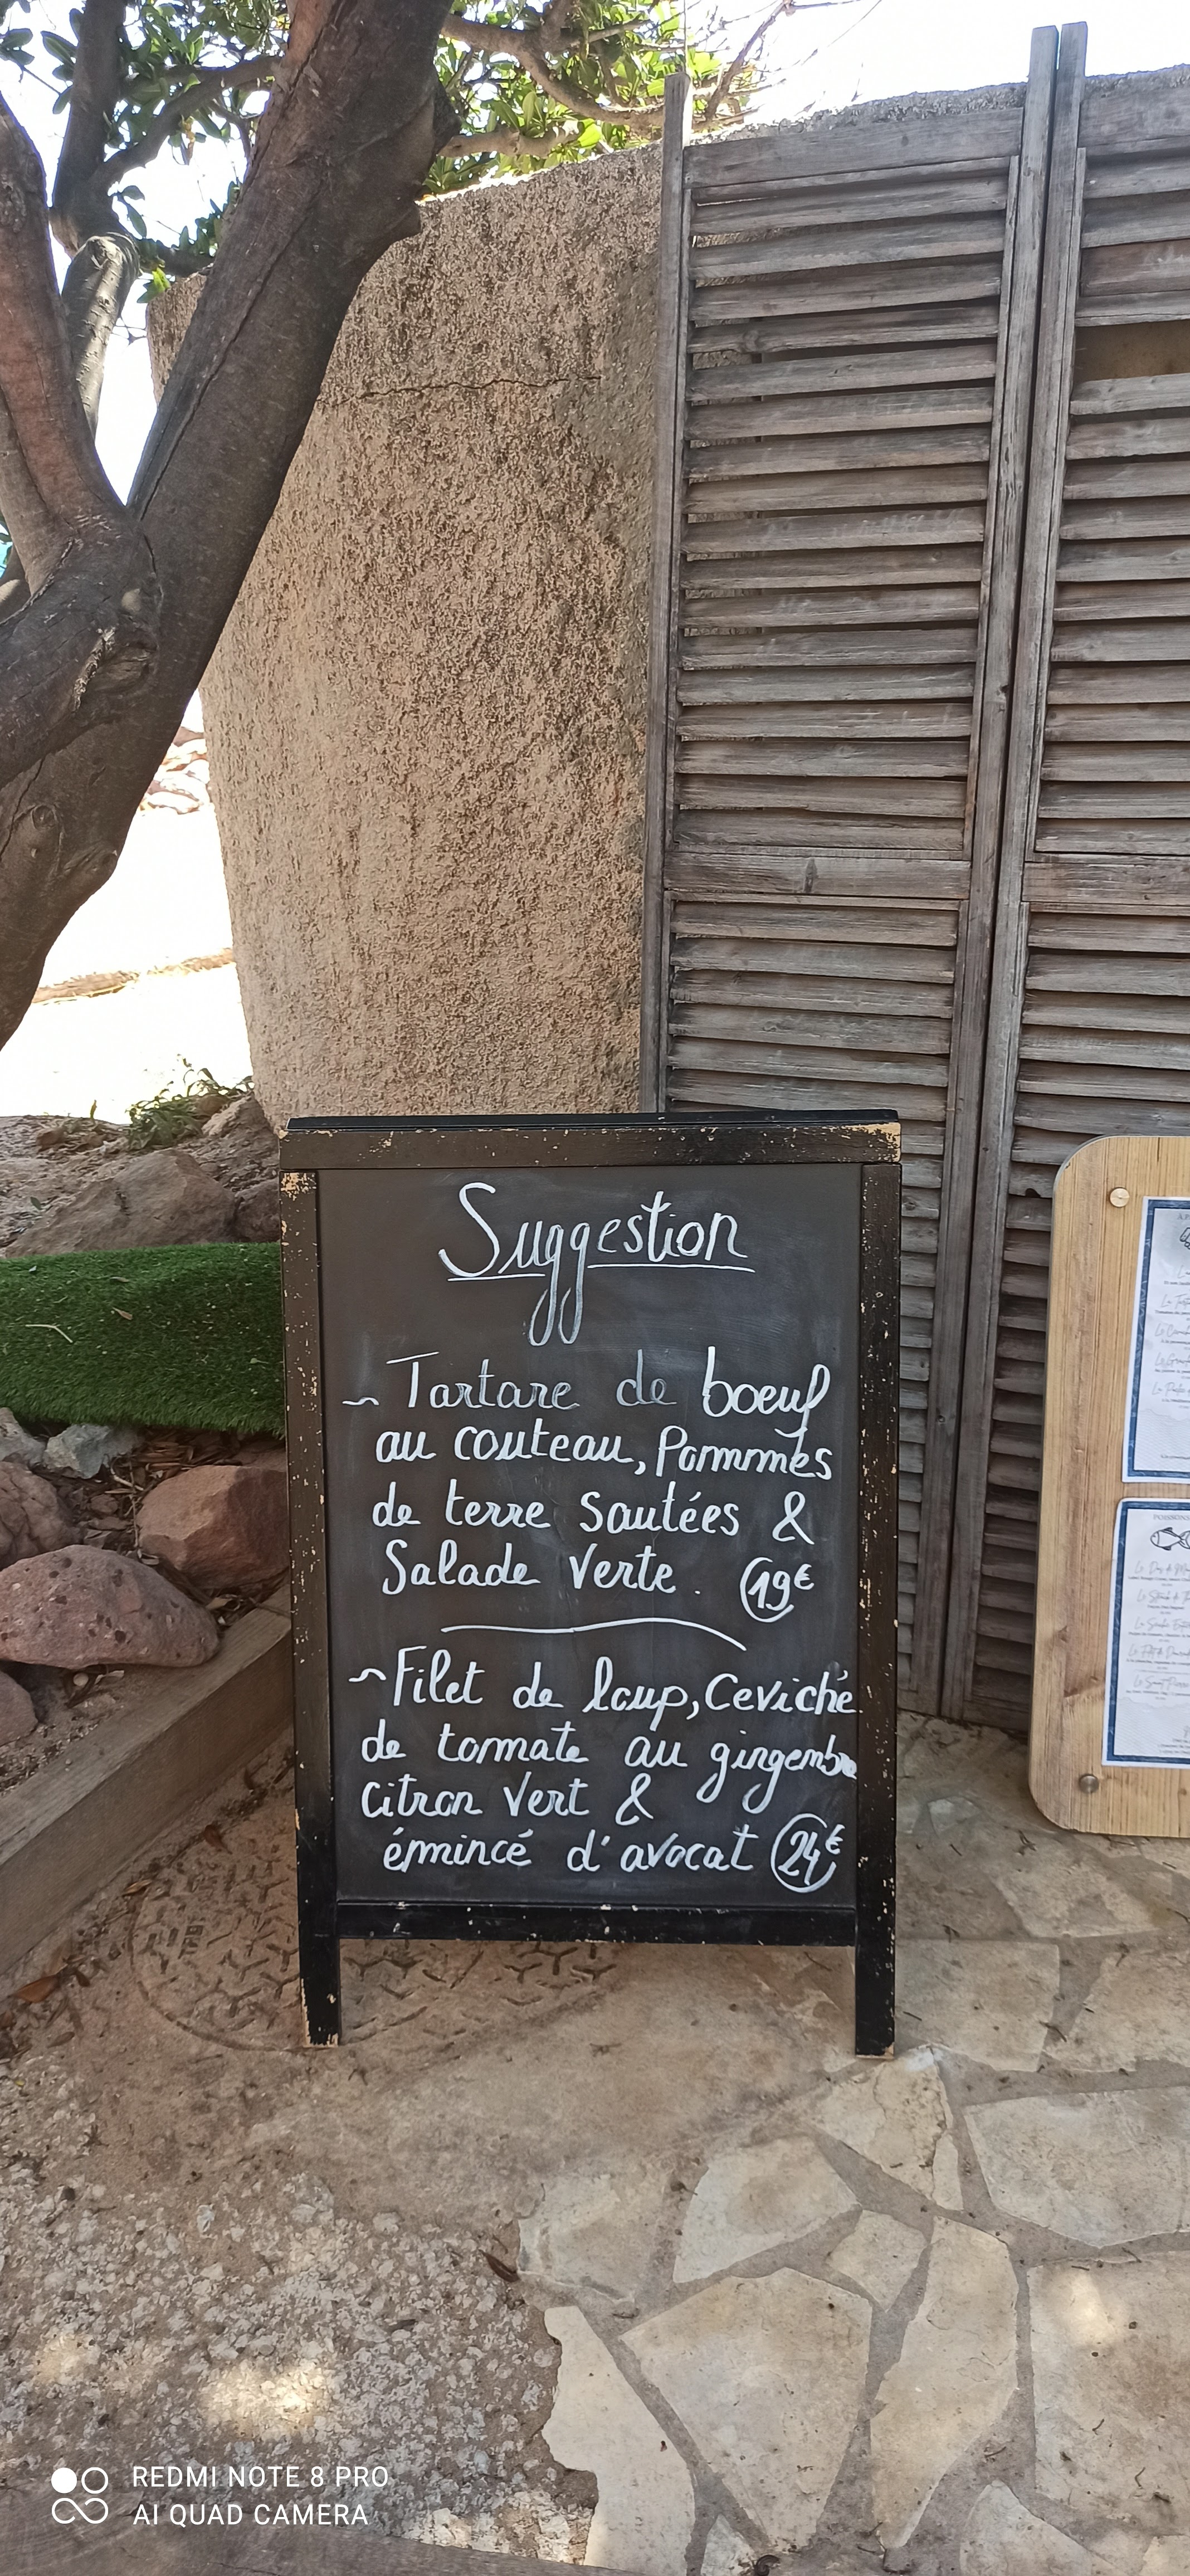 Suggestion
~ Tartare de boeuf
au couteau, Pommes
de terre sautées &
Salade verte. 19€
~ Filet de loup, Ceviché
de tomate au gingembre
citron vert &
émincé d'avocat 24€
POISSONS
REDMI NOTE 8 PRO
AI QUAD CAMERA